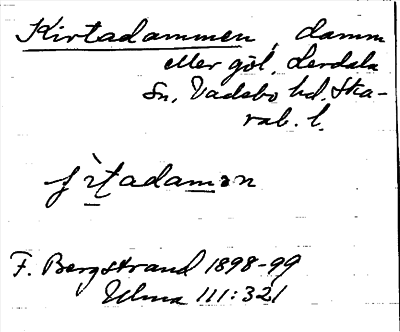 Kirtadammen, damm
eller göl. Lerdala
sn, Vadsbo hd, Ska-
rab. l.
F. Bergstrand 1898-99
Ulma 111:321